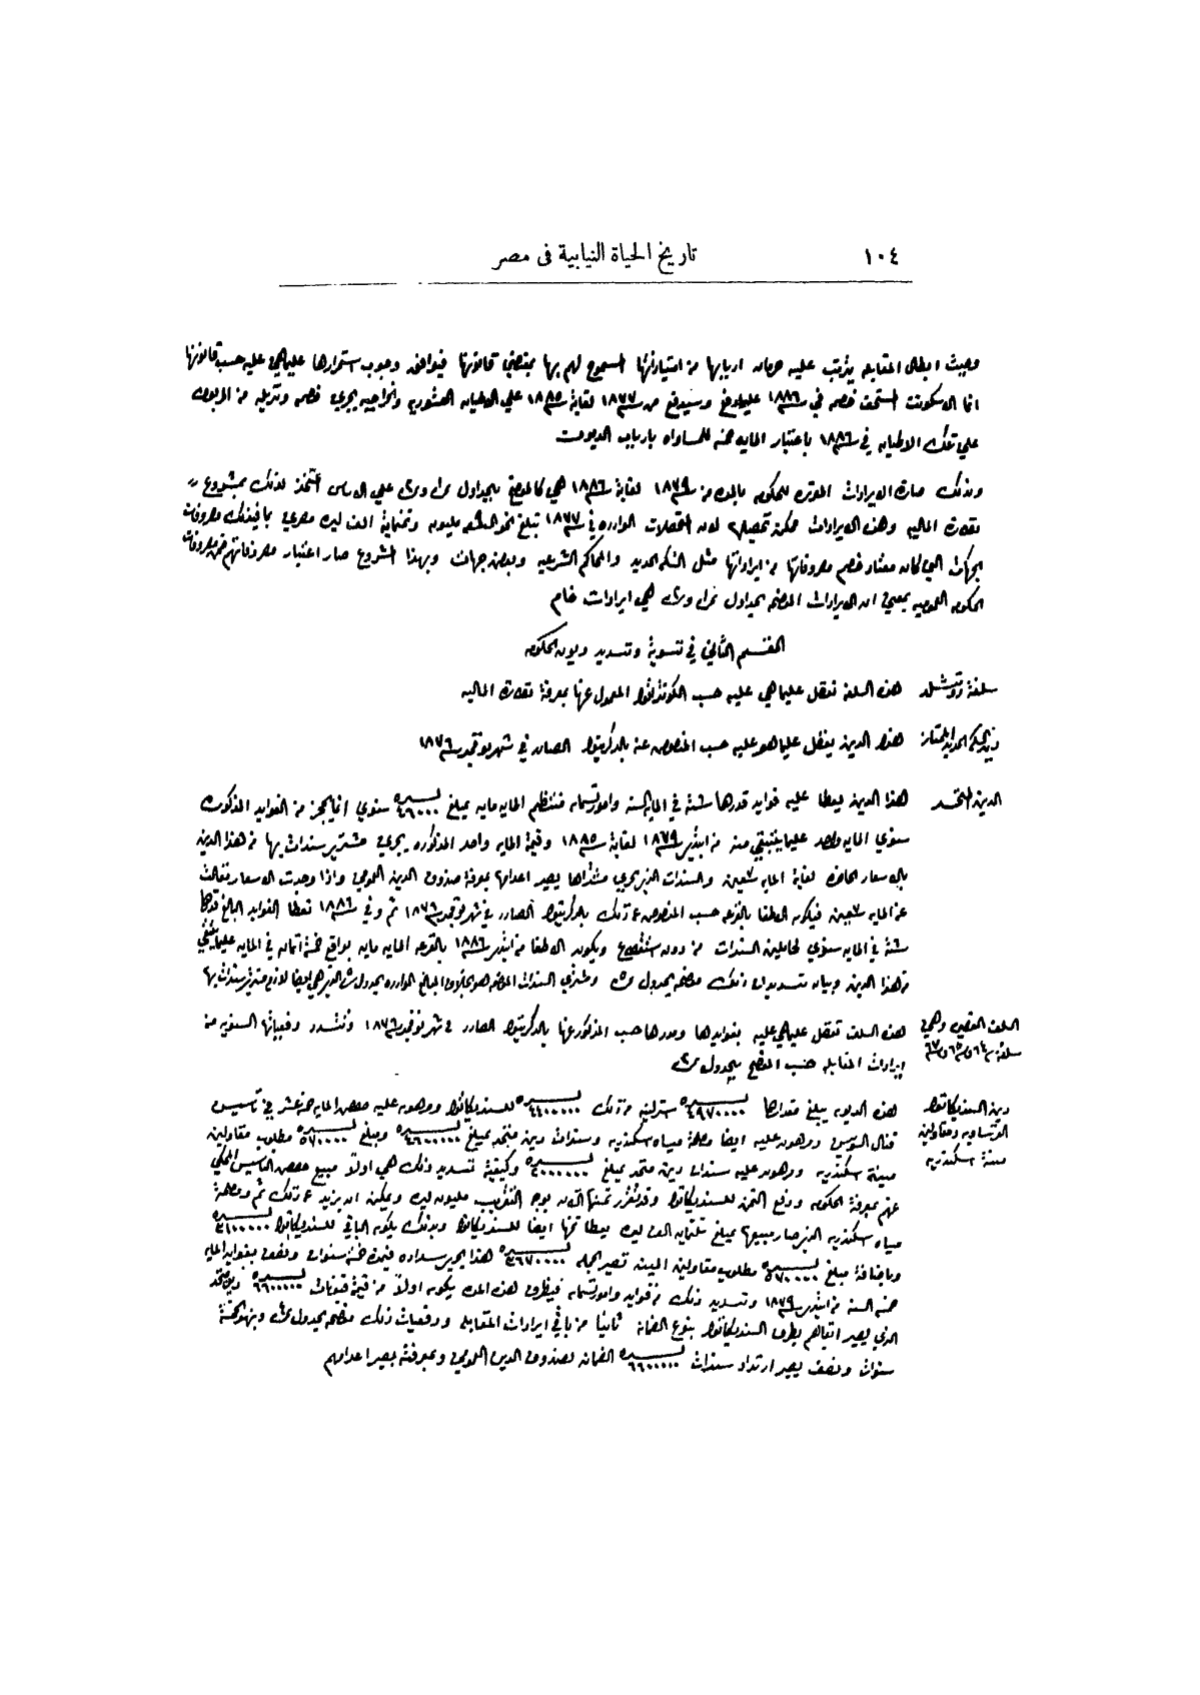 ١٠٤ تاريخ الحياة النيابية فى مصر
وحيث ابطال المقابله يترتب عليه حرمان اربابها من امتيازاتها المسموح لهم بها بمقتضى قانونها فيوافق وجوب استمرارها على ماهي عليه حسب قانونها
انما السكونت المستحق خصمه في سنة ١٨٨٦ على ما دفع وسيدفع من سنة ١٨٧٧ لغاية سنة ١٨٨٥ علي الاطيان العشوريه والخراجيه يجري خصمه وتنزيله من المربوط
علي تلك الاطيان في سنة ١٨٨٦ باعتبار المايه خمسه للمساواه بارباب الديونات
وبذلك صارت الايرادات المقرره للحكومه بالمده من سنة ١٨٧٩ لغاية سنة ١٨٨٦ هي كالموضح بالجداول علي الاساس المتخذ لذلك بمشروع
نظارة الماليه وهذه الايرادات ممكن تحصيلها لان المتحصلات الوارده في سنة ١٨٧٧ تبلغ نحو التسعه مليون وثمنماية الف ليره مصري بما في ذلك مصروفات
الجهات التي كان معتاد خصم مصروفاتها من ايراداتها مثل السكه الحديد والمحاكم الشرعيه وبعض جهات وبهذا المشروع صار اعتبار مصروفاتهم ضمن مصروفات
الحكومه العموميه بمعني ان الايرادات الموضحه بجداول هي ايرادات خام
القسم الثاني في تسوية وتسديد ديون الحكومه
سلفة روتشلد هذه السلفه تفضل على ماهي عليه حسب الكونتراتو المعمول عنها بمعرفة نظارة الماليه
دين السكه الحديد الممتاز هذا الدين يفضل على ماهو عليه حسب المنصوص عنه بالدكريتو الصادر في شهر نوفمبر سنة ١٨٧٦
الدين المتحد هذا الدين يعطا عليه فوايد قدرها ستة في المايه السنه وامورتسمان منتظم المايه مايه بمبلغ ليره ٤٦٠٠٠٠ سنوي انما يحجز من الفوايد المذكوره
سنوي المايه واحد على ما يتبقى منه من ابتدي سنة ١٨٧٩ لغاية سنة ١٨٨٥ وقيمة المايه واحد المذكوره يجري مشترى سندات بها من هذا الدين
بالاسعار الحاضره لغاية المايه سبعين والسندات الذي يجري مشتراها يصير اعدامها بمعرفة صندوق الدين العمومي واذا وجدت الاسعار تعالت
عن المايه سبعين فيكون الاطفا بالقرعه حسب المنصوص عن ذلك بالدكريتو الصادر في شهر نوفمبر سنة ١٨٧٦ ثم وفي سنة ١٨٨٦ تعطا الفوايد البالغ قدرها
ستة في المايه سنوي لحاملين السندات من دون استقطاع ويكون الاطفا من ابتدي سنة ١٨٨٦ بالقرعه المايه مايه بواقع خمسة اتمان في المايه على ما يتبقى
من هذا الدين وبيان تسديدات ذلك موضحه بجدول
السلف القصيره وهي سلفة سنة ٦٤ وسنة ٦٥ وسنة ٦٧
هذه السلف تفضل على ماهي عليه بفوايدها ومددها حسب المذكور عنها بالدكريتو الصادر في شهر نوفمبر سنة ١٨٧٦ وتتسدد دفعياتها السنويه من
ايرادات المقابله حسب الموضح بجدول
دين السنديكاتو الفرنساويه ومقاولين مينة اسكندريه
هذه الديون يبلغ مقدارها ليره ٤٩٧٠٠٠٠ استرلينيه من ذلك ليره ٤٤٠٠٠٠٠ للسنديكاتو ومرهون عليه حصص المايه خمسة عشر في تاسيس
قنال السويس ومرهون عليه ايضا مصلحة مياه اسكندريه وسندات دين متحد بمبلغ ليره ٤٦٠٠٠٠٠ ومبلغ ليره ٥٧٠٠٠٠ مطلوب مقاولين
مينة اسكندريه ومرهون عليه سندات دين متحد بمبلغ وكيفية تسديد ذلك هي اولاً مبيع حصص التاسيس المحكي
عنهم بمعرفة الحكومه ودفع الثمن للسنديكاتو وقد تقرر ثمنها الان بوجه التقريب مليون ليره ويمكن ان يزيد عن ذلك ثم ومصلحة
مياه اسكندريه الذي صار مبيعها بمبلغ ثلثماية الف ليره يعطا ثمنها ايضا للسنديكاتو وبذلك يكون الباقي للسنديكاتو ليره ٣١٠٠٠٠٠
وباضافة مبلغ ليره ٥٧٠٠٠٠ مطلوب مقاولين المينه تصير الجمله ليره ٣٦٧٠٠٠٠ هذا يجري سداده في مدة خمسة سنوات ونصف بفوايد المايه
خمسه السنه من ابتدي سنة ١٨٧٩ وتسديد ذلك من فوايد وامورتسمان في ظرف هذه المده يكون اولاً من قيمة كوبونات ليره ٦٦٠٠٠٠٠ دين متحد
الذي يصير ابقاهم بطرف السنديكاتو بنوع الضمانه ثانياً من باقي ايرادات المقابله ودفعيات ذلك موضحه بجدول وبنهو الخمسة
سنوات ونصف يصير ارتداد سندات ليره ٦٦٠٠٠٠٠ الضمانه لصندوق الدين العمومي وبمعرفته يصير اعدامهم